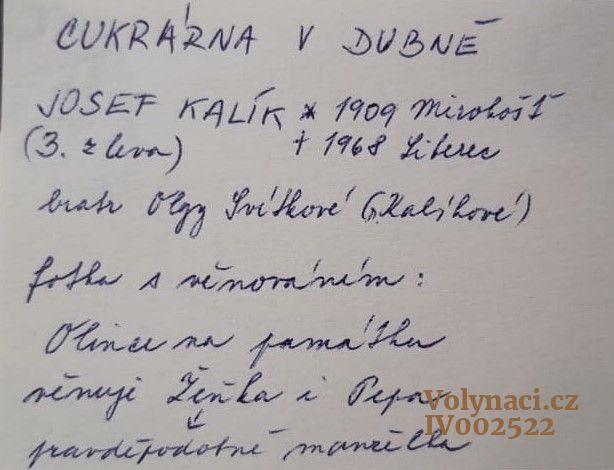 CUKRÁRNA V DUBNĚ
JOSEF KALÍK * 1909 Mirohošť
(3. z leva) † 1968 Liberec
bratr Olgy Svítkové (r. Kalíkové)
fotka s věnováním:
Olince na památku
věnuje Žeňka i Pepa
pravděpodobně manželka
Volynaci.cz
IV002522